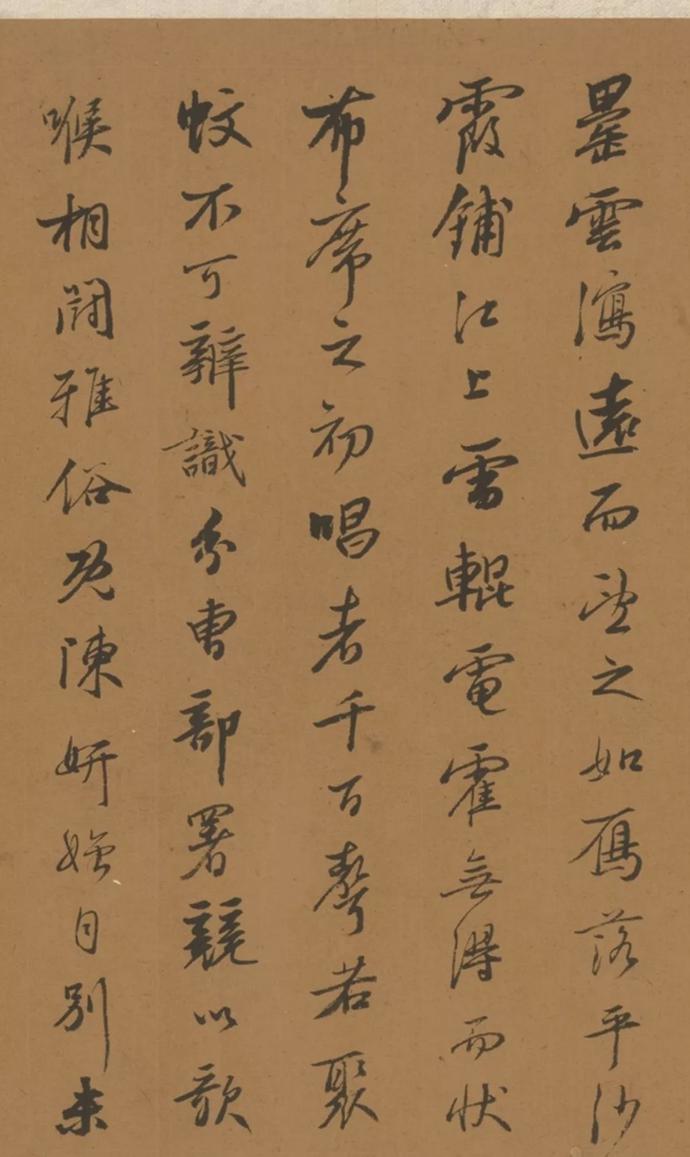 罍雲瀉遠而望之如鴈落平沙
霞鋪江上雷輥電霍無得而狀
布席之初唱者千百聲若聚
蚊不可辨識分曹部署競以歌
喉相鬪雅俗既陳妍媸自別未